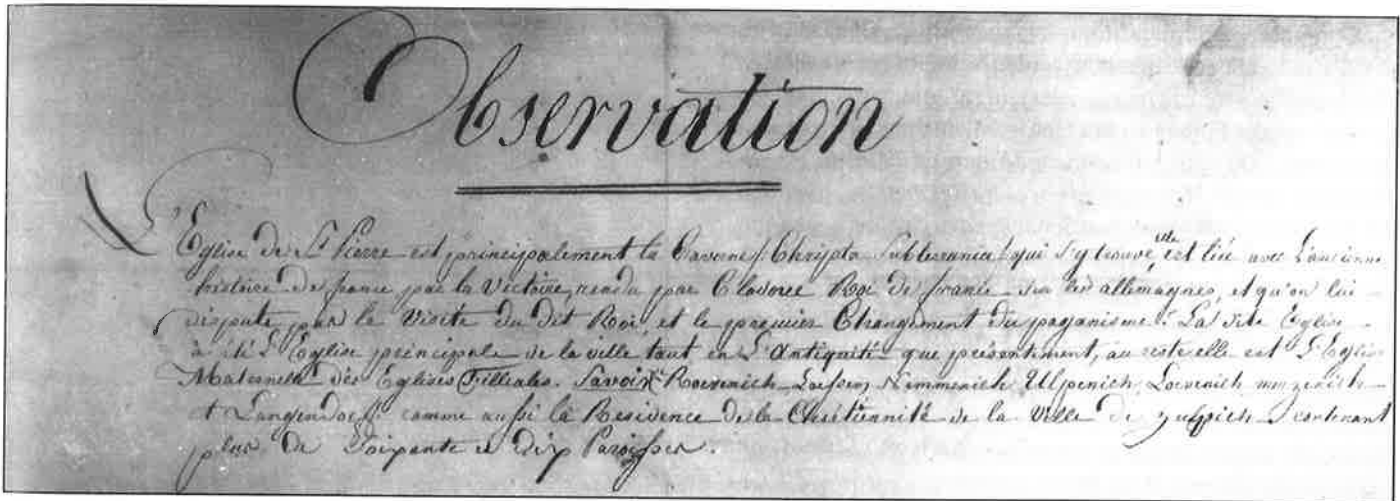 Observation
L'Eglise de St Pierre est principalement la Caverne (Chripta Subteranica) qui s'y trouve, est liée avec l'ancienne
histoire de france par la Victoire, rendu par Clavovee Roi de france sur les allemagnes, et qu'on lui
dispute par le Visite du dit Roi, et le premier Changement du paganisme. La dite Eglise
à été L'Eglise principale de la ville tant en L'antiquité que présentement, au reste elle est L'Eglise
Maternelle des Eglises Filleales. Savoir Roevenich, Loessen, Nemmenich, Ulpenich, Loevenich, merzenich
et Langendorf; comme aussi la Residence de la Chrétiennité de la Ville de zulpich contenant
plus de Soixante et dix Paroisses.